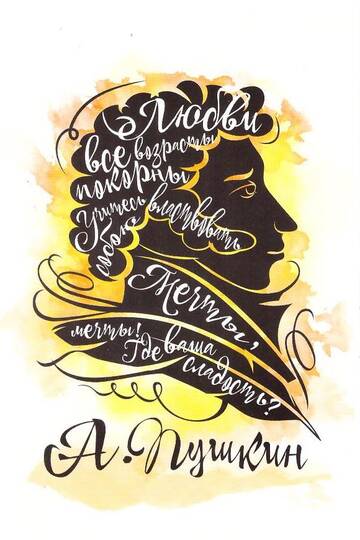 Любви
все возрасты
покорны
Учитесь властвовать
собою
Мечты,
мечты!
Где ваша
сладость?
А. Пушкин